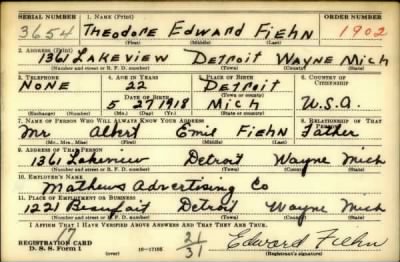 SERIAL NUMBER 1. NAME (Print) ORDER NUMBER
3654 THEODORE EDWARD FIEHN 1902
(First) (Middle) (Last)
2. ADDRESS (Print)
1361 LAKEVIEW DETROIT WAYNE MICH
(Number and street or R. F. D. number) (Town) (County) (State)
3. TELEPHONE 4. AGE IN YEARS 5. PLACE OF BIRTH 6. COUNTRY OF CITIZENSHIP
NONE 22 DETROIT
DATE OF BIRTH (Town or county)
5 27 1918 MICH U.S.A.
(Mo.) (Day) (Yr.) (State or country)
7. NAME OF PERSON WHO WILL ALWAYS KNOW YOUR ADDRESS 8. RELATIONSHIP OF THAT PERSON
Mr Albert Emil Fiehn Father
(Mr., Mrs., Miss) (First) (Middle) (Last)
9. ADDRESS OF THAT PERSON
1361 Lakeview Detroit Wayne Mich
(Number and street or R. F. D. number) (Town) (County) (State)
10. EMPLOYER'S NAME
Mathews Advertising Co
11. PLACE OF EMPLOYMENT OR BUSINESS
1221 Beaufait Detroit Wayne Mich
(Number and street or R. F. D. number) (Town) (County) (State)
I AFFIRM THAT I HAVE VERIFIED ABOVE ANSWERS AND THAT THEY ARE TRUE.
REGISTRATION CARD
D. S. S. Form 1 16-17105 Edward Fiehn
(Registrant's signature)